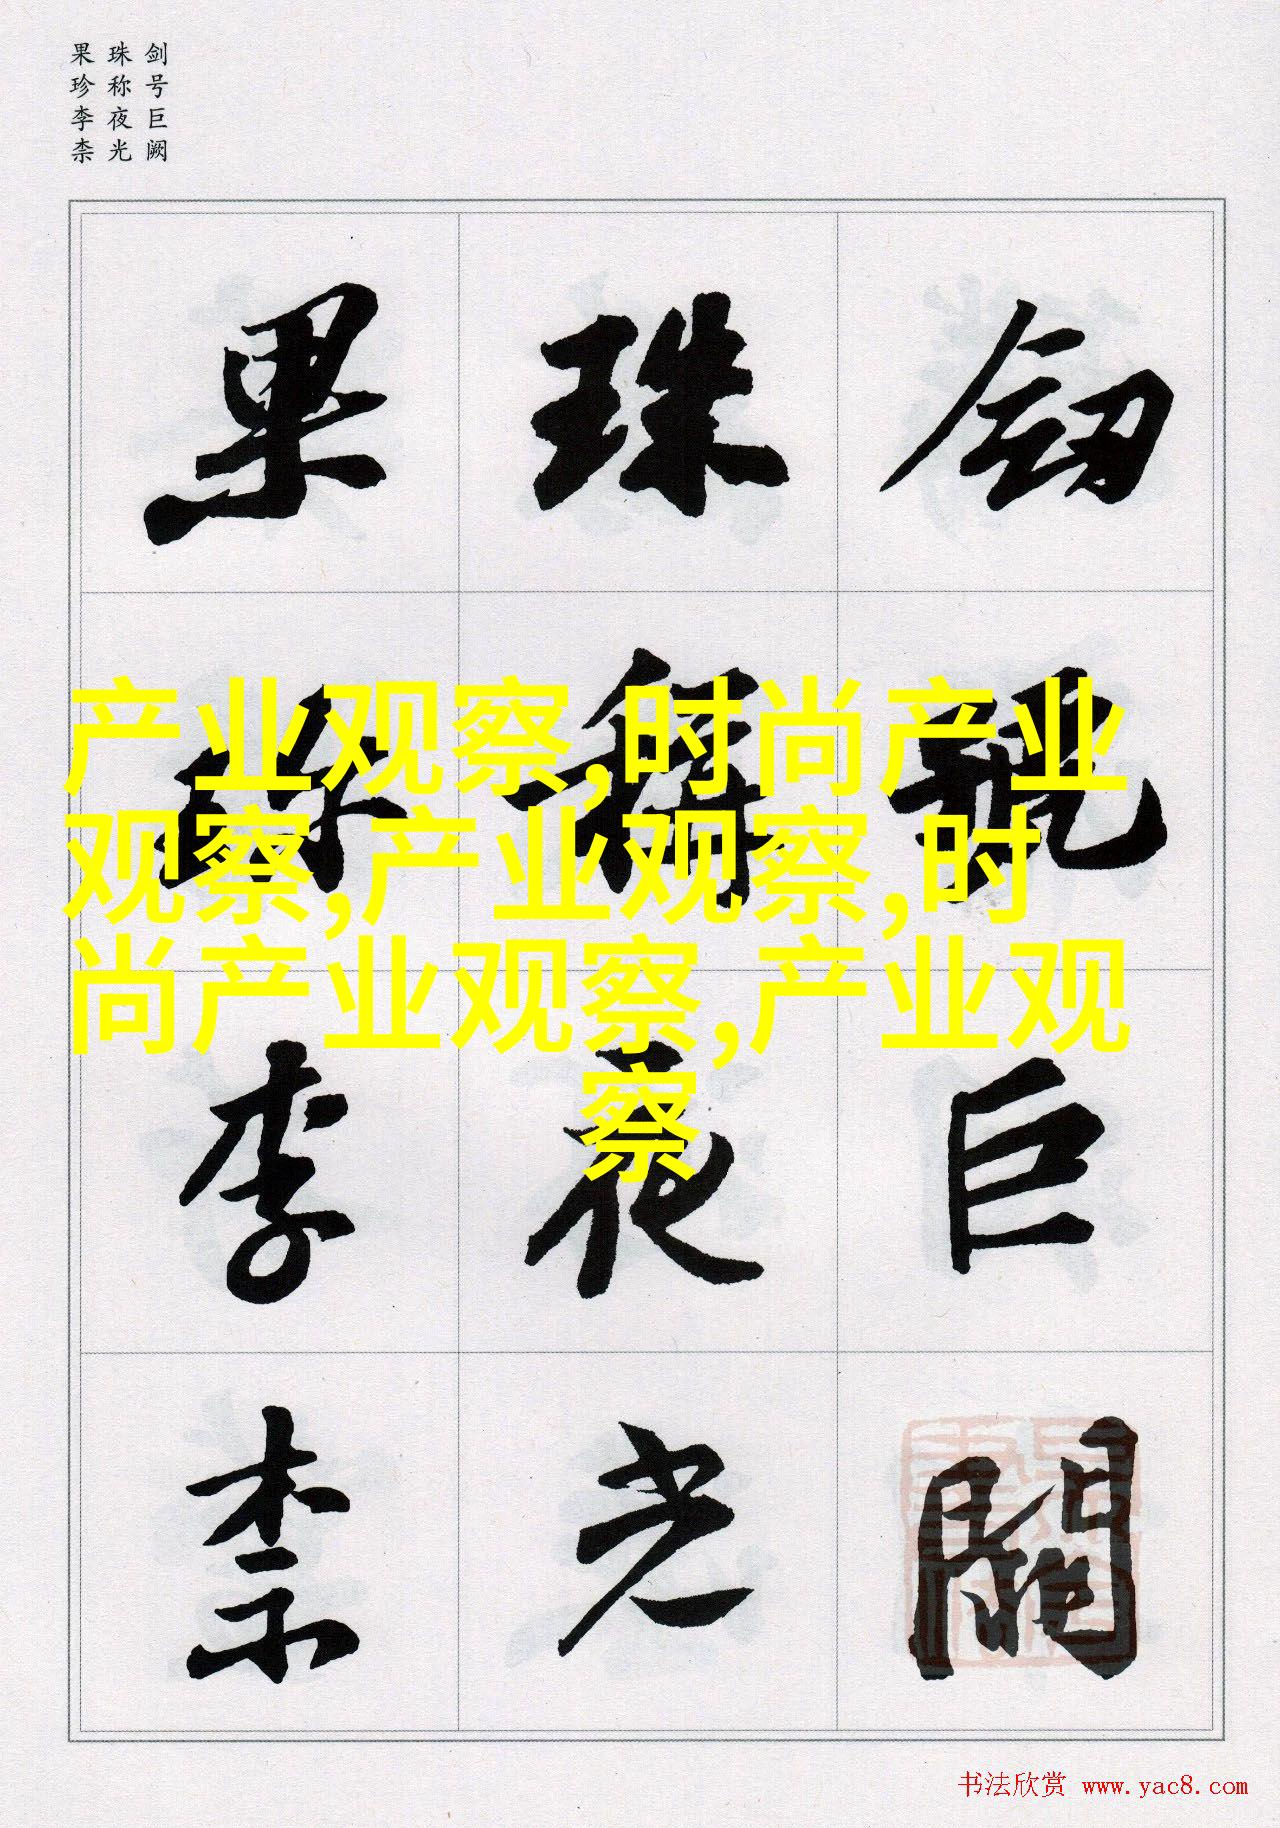 剑号巨阙
珠称夜光
果珍李柰
劒號巨闕
珠稱夜光
果珍李柰
产业观察,时尚产业
观察,产业观察,时
尚产业观察,产业观
察
书法欣赏 www.yac8.com